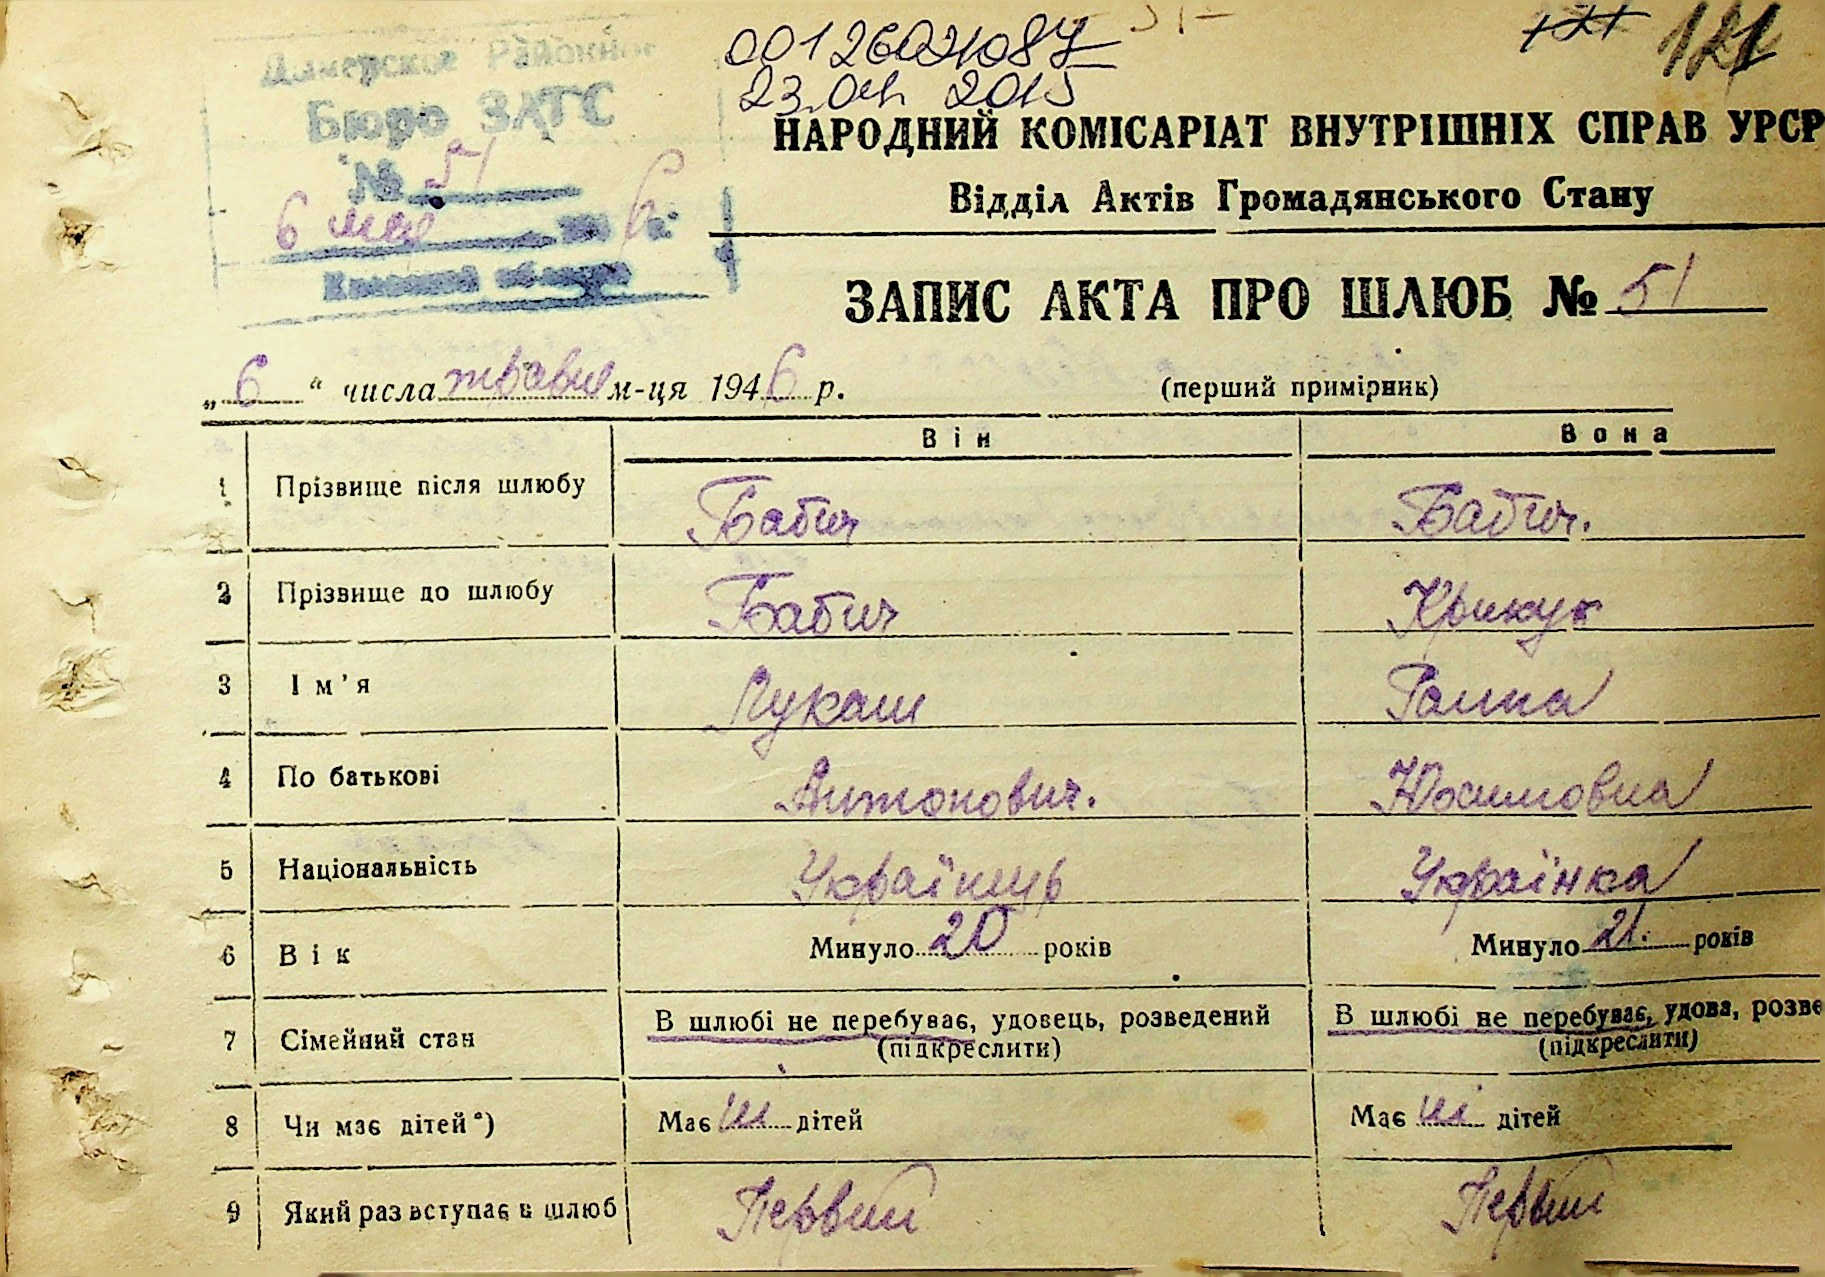 Дымерское Районное
Бюро ЗАГС
№ 51
6 мая 1946 г.
Киевской области
00126021087
23.04. 2015
121 121
НАРОДНИЙ КОМІСАРІАТ ВНУТРІШНІХ СПРАВ УРСР
Відділ Актів Громадянського Стану
ЗАПИС АКТА ПРО ШЛЮБ № 51
„ 6 “ числа травня м-ця 1946 р. (перший примірник)
Він Вона
1 Прізвище після шлюбу Бабич Бабич.
2 Прізвище до шлюбу Бабич Крикун
3 Ім’я Лукаш Ганна
4 По батькові Антонович. Юхимовна
5 Національність Українець Українка
6 Вік Минуло 20 років Минуло 21. років
7 Сімейний стан В шлюбі не перебуває, удовець, розведений В шлюбі не перебуває, удова, розве
(підкреслити) (підкреслити)
8 Чи має дітей*) Має ні дітей Має ні дітей
9 Який раз вступає в шлюб Первий Первий